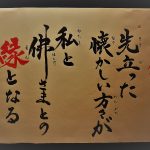 先立った
懐かしい方々が
私と
佛さまとの
縁となる